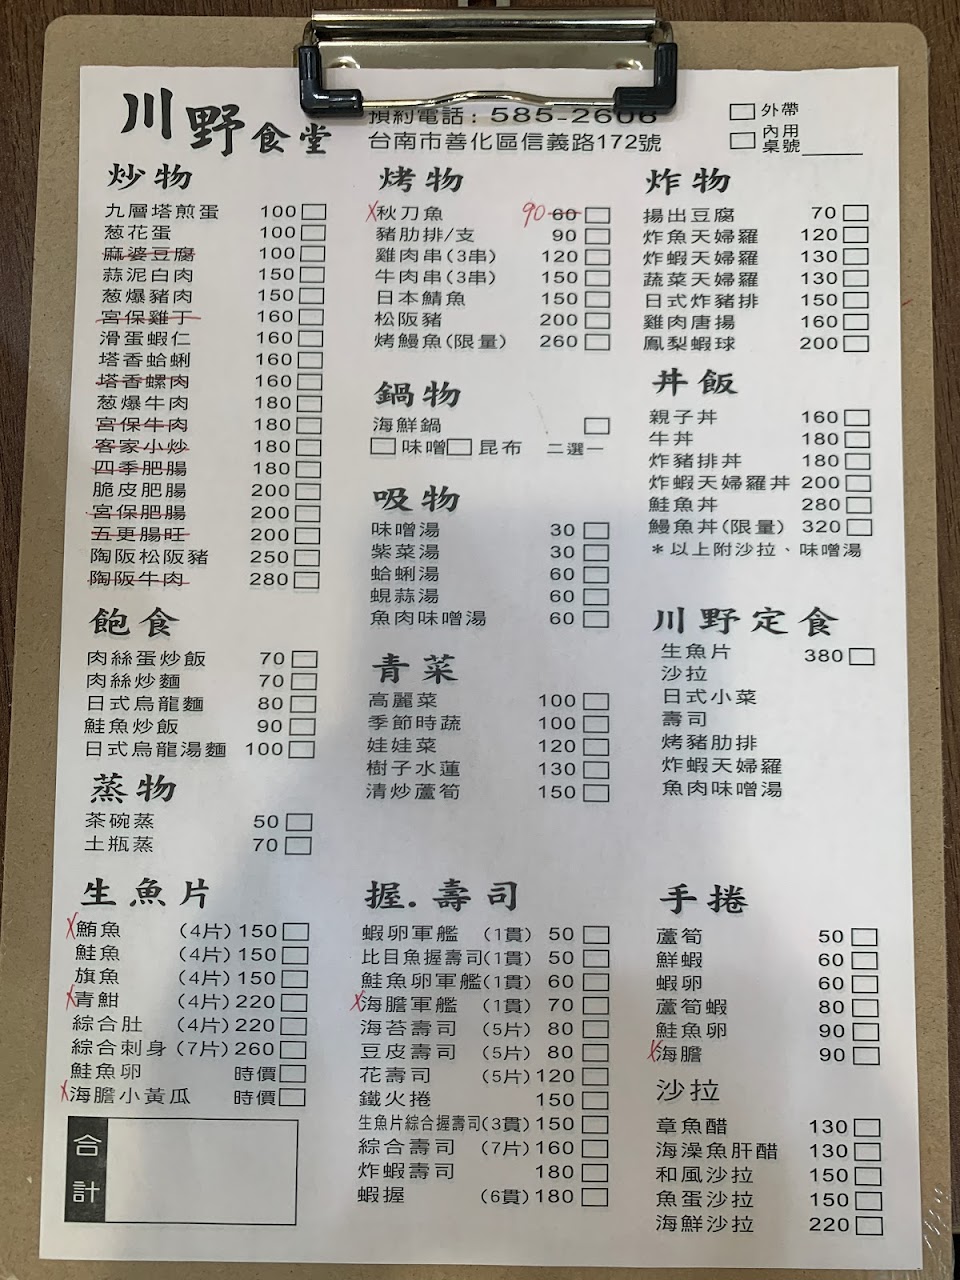 川野食堂
預約電話：585-2606
台南市善化區信義路172號
□外帶
□內用
桌號
炒物
九層塔煎蛋 100□
葱花蛋 100□
麻婆豆腐 100□
蒜泥白肉 150□
葱爆豬肉 150□
宮保雞丁 160□
滑蛋蝦仁 160□
塔香蛤蜊 160□
塔香螺肉 160□
葱爆牛肉 180□
宮保牛肉 180□
客家小炒 180□
四季肥腸 180□
脆皮肥腸 200□
宮保肥腸 200□
五更腸旺 200□
陶阪松阪豬 250□
陶阪牛肉 280□
飽食
肉絲蛋炒飯 70□
肉絲炒麵 70□
日式烏龍麵 80□
鮭魚炒飯 90□
日式烏龍湯麵 100□
蒸物
茶碗蒸 50□
土瓶蒸 70□
烤物
X秋刀魚 90 60□
豬肋排/支 90□
雞肉串(3串) 120□
牛肉串(3串) 150□
日本鯖魚 150□
松阪豬 200□
烤鰻魚(限量) 260□
鍋物
海鮮鍋 □
□味噌□昆布 二選一
吸物
味噌湯 30□
紫菜湯 30□
蛤蜊湯 60□
蜆蒜湯 60□
魚肉味噌湯 60□
青菜
高麗菜 100□
季節時蔬 100□
娃娃菜 120□
樹子水蓮 130□
清炒蘆筍 150□
炸物
揚出豆腐 70□
炸魚天婦羅 120□
炸蝦天婦羅 130□
蔬菜天婦羅 130□
日式炸豬排 150□
雞肉唐揚 160□
鳳梨蝦球 200□
丼飯
親子丼 160□
牛丼 180□
炸豬排丼 180□
炸蝦天婦羅丼 200□
鮭魚丼 280□
鰻魚丼(限量) 320□
＊以上附沙拉、味噌湯
川野定食
生魚片 380□
沙拉
日式小菜
壽司
烤豬肋排
炸蝦天婦羅
魚肉味噌湯
生魚片
X鮪魚 (4片)150□
鮭魚 (4片)150□
旗魚 (4片)150□
X青魽 (4片)220□
綜合肚 (4片)220□
綜合刺身(7片)260□
鮭魚卵 時價□
X海膽小黃瓜 時價□
合計
握.壽司
蝦卵軍艦 (1貫) 50□
比目魚握壽司(1貫) 50□
鮭魚卵軍艦(1貫) 60□
X海膽軍艦 (1貫) 70□
海苔壽司 (5片) 80□
豆皮壽司 (5片) 80□
花壽司 (5片)120□
鐵火捲 150□
生魚片綜合握壽司(3貫)150□
綜合壽司 (7片)160□
炸蝦壽司 180□
蝦握 (6貫)180□
手捲
蘆筍 50□
鮮蝦 60□
蝦卵 60□
蘆筍蝦 80□
鮭魚卵 90□
X海膽 90□
沙拉
章魚醋 130□
海澡魚肝醋 130□
和風沙拉 150□
魚蛋沙拉 150□
海鮮沙拉 220□